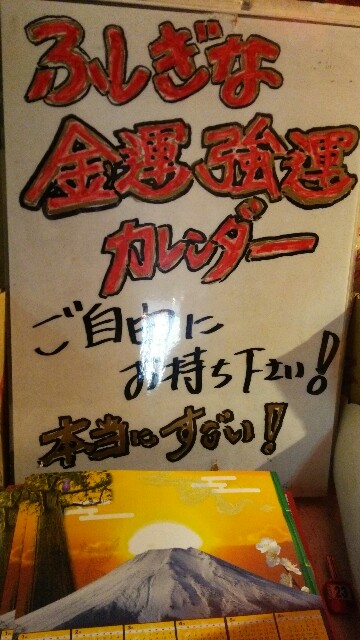 ふしぎな
金運強運
カレンダー
ご自由に
お持ち下さい!
本当にすごい!
23